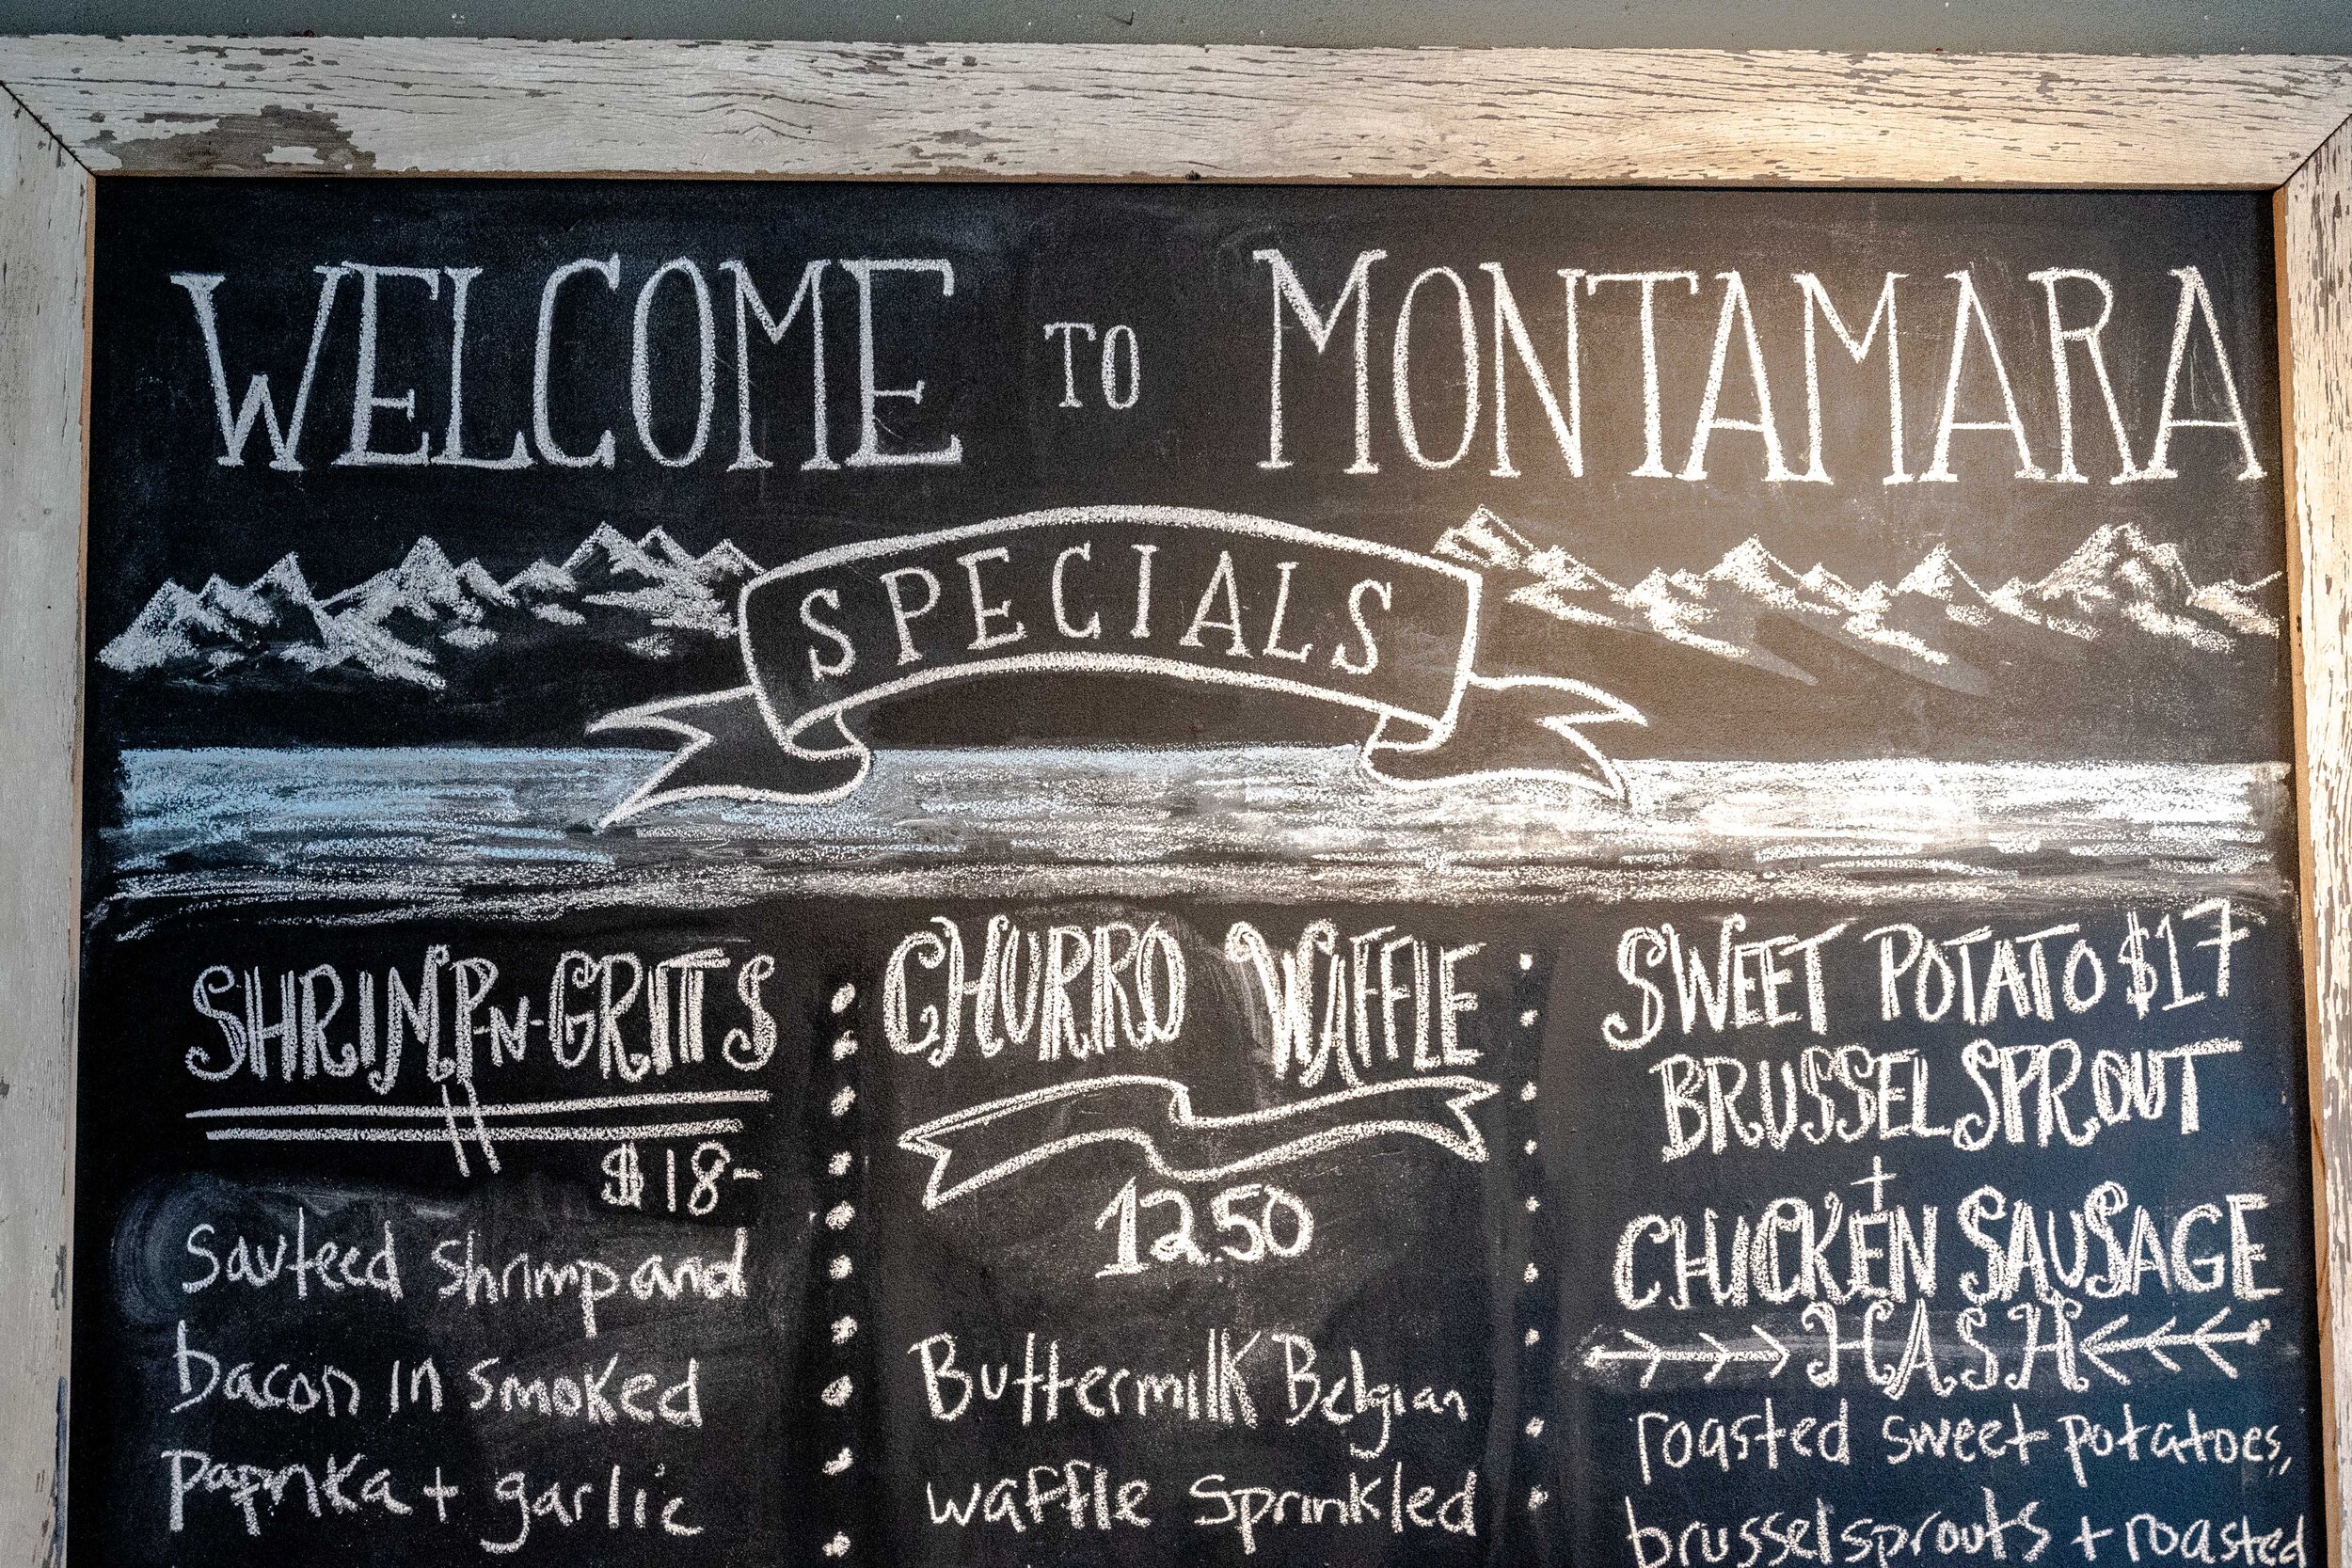 WELCOME TO MONTAMARA
SPECIALS
SHRIMP-N-GRITS
$18-
Sauteed shrimp and
bacon in smoked
paprika + garlic
CHURRO WAFFLE
12.50
Buttermilk Belgian
waffle Sprinkled
SWEET POTATO $17
BRUSSEL SPROUT
+
CHICKEN SAUSAGE
HASH
roasted sweet potatoes,
brussel sprouts + roasted